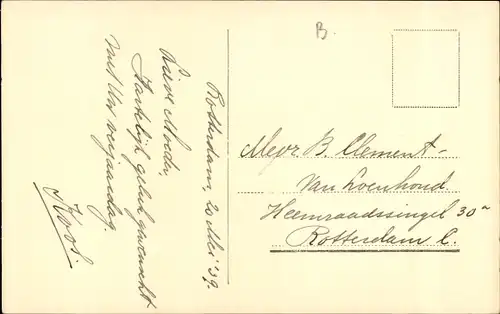 B.
Rotterdam, 20 Mei '39.
Lieve Moeder,
Hartelijk gelukgewenscht
met Uw verjaardag.
Koos.
Mevr. B. Clement-
Van Loenhoud
Heemraadssingel 30a
Rotterdam C.